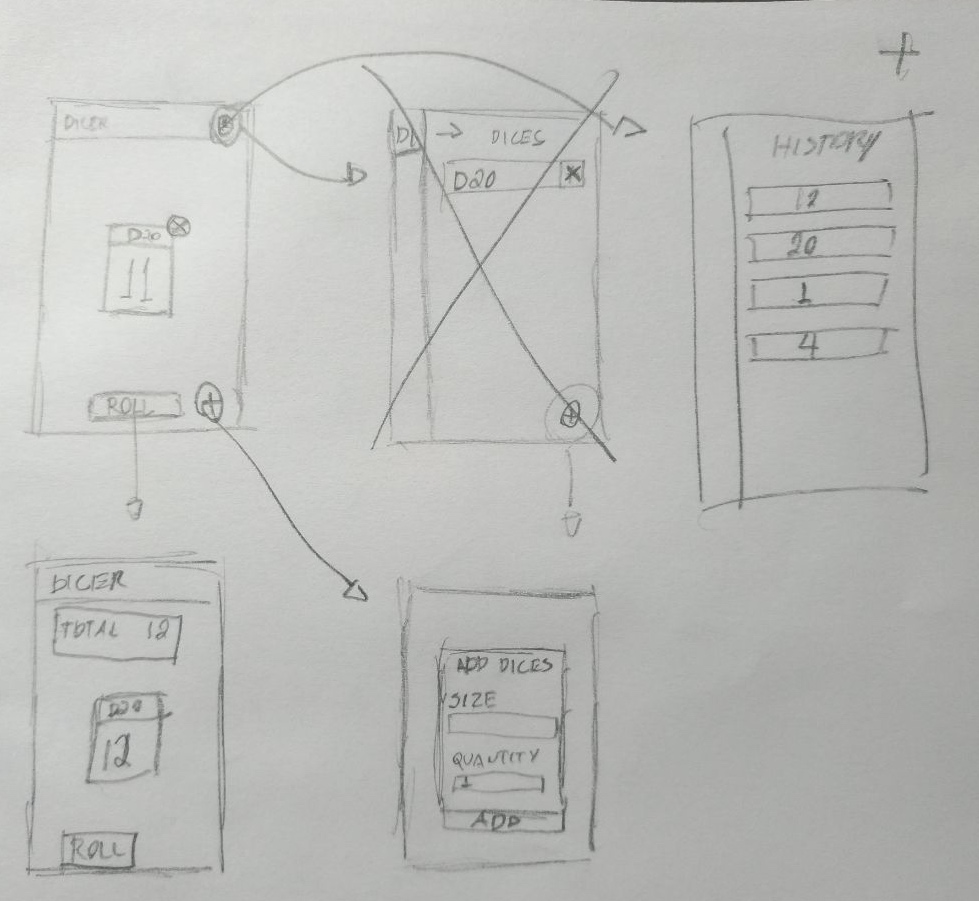 DICER
D20
11
ROLL
DI
DICES
D20
HISTORY
12
20
1
4
DICER
TOTAL 12
D20
12
ROLL
ADD DICES
SIZE
QUANTITY
1
ADD